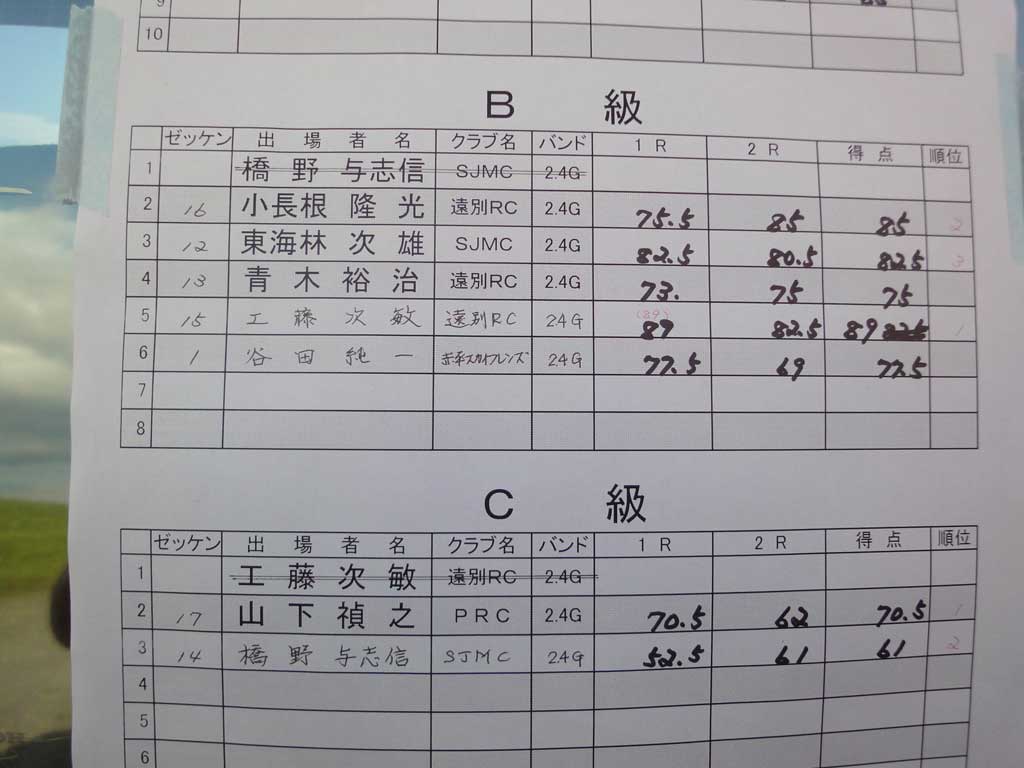 9
10
B 級
ゼッケン 出場者名 クラブ名 バンド 1R 2R 得点 順位
1 橋野 与志信 SJMC 2.4G
2 16 小長根 隆光 遠別RC 2.4G 75.5 85 85 2
3 12 東海林 次雄 SJMC 2.4G 82.5 80.5 82.5 3
4 13 青木裕治 遠別RC 2.4G 73. 75 75
(89)
5 15 工藤次敏 遠別RC 2.4G 89 82.5 89 1
6 1 谷田純一 赤平スカイフレンズ 2.4G 77.5 69 77.5
7
8
C 級
ゼッケン 出場者名 クラブ名 バンド 1R 2R 得点 順位
1 工藤次敏 遠別RC 2.4G
2 17 山下禎之 PRC 2.4G 70.5 62 70.5 1
3 14 橋野 与志信 SJMC 2.4G 52.5 61 61 2
4
5
6